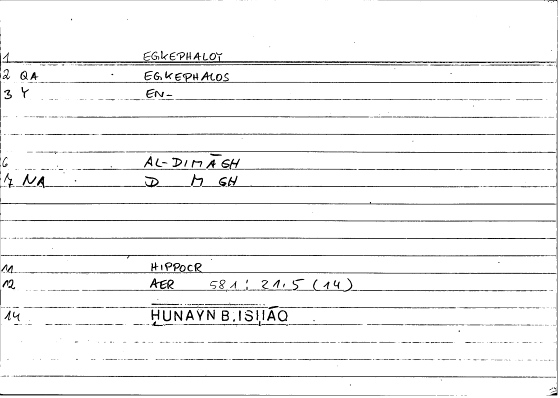 1 EGKEPHALOY
2 QA EGKEPHALOS
3 Y EN-
6 AL-DIMĀGH
7 NA D M GH
11 HIPPOCR
12 AER 581:21.5 (14)
14 ḤUNAYN B.ISḤĀQ